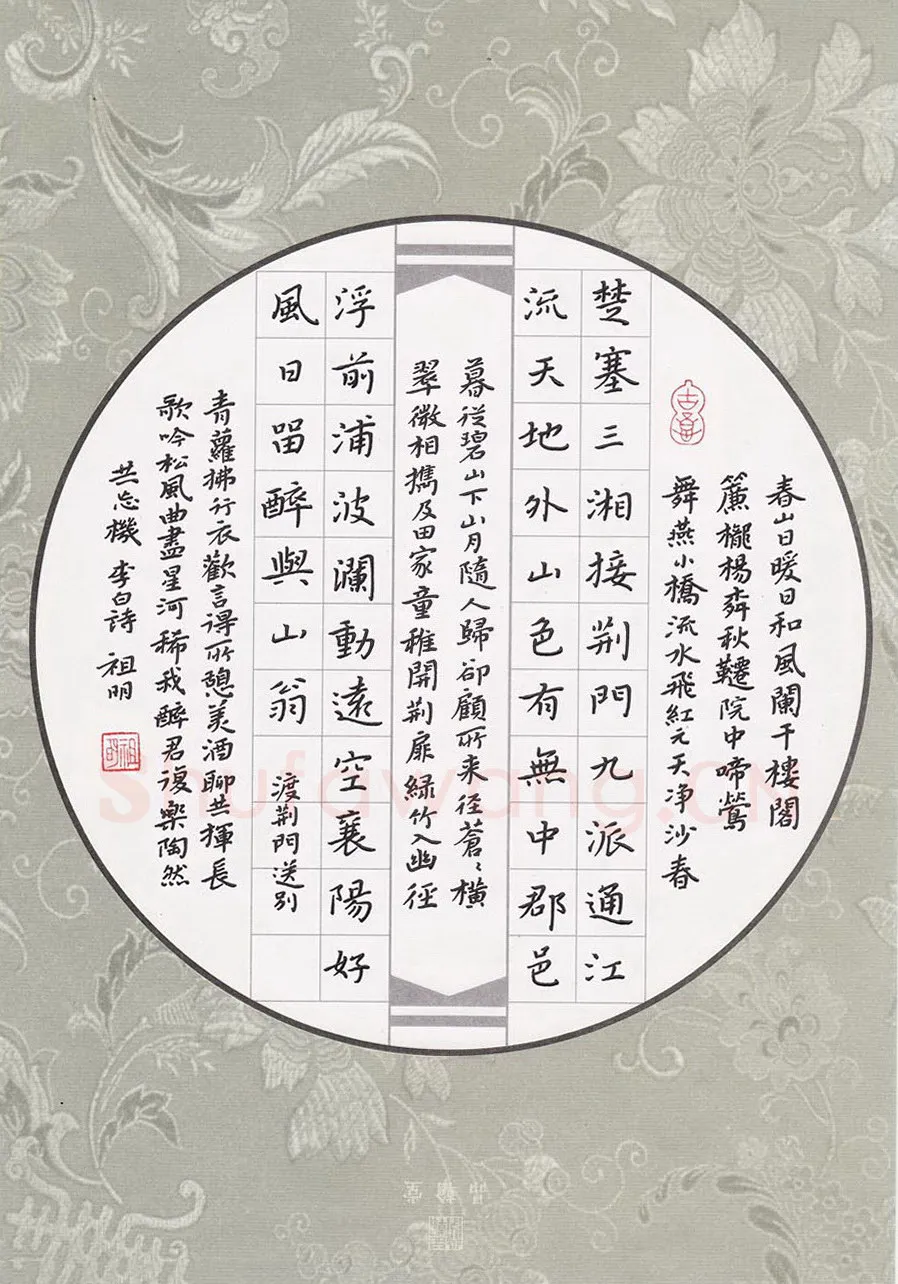 春山日暖日和風闌干樓閣
簾櫳楊桺秋韆院中啼鶯
舞燕小橋流水飛紅元天净沙春
楚塞三湘接荆門九派通江
流天地外山色有無中郡邑
暮從碧山下山月隨人歸卻顧所来径蒼〻橫
翠微相攜及田家童稚開荆扉緑竹入幽径
浮前浦波瀾動遠空襄陽好
風日畱醉與山翁 渡荆門送别
青蘿拂行衣歡言得所憩美酒聊共揮長
歌吟松風曲盡星河稀我醉君復樂陶然
共忘機 李白詩 祖明
Shufawang.CN